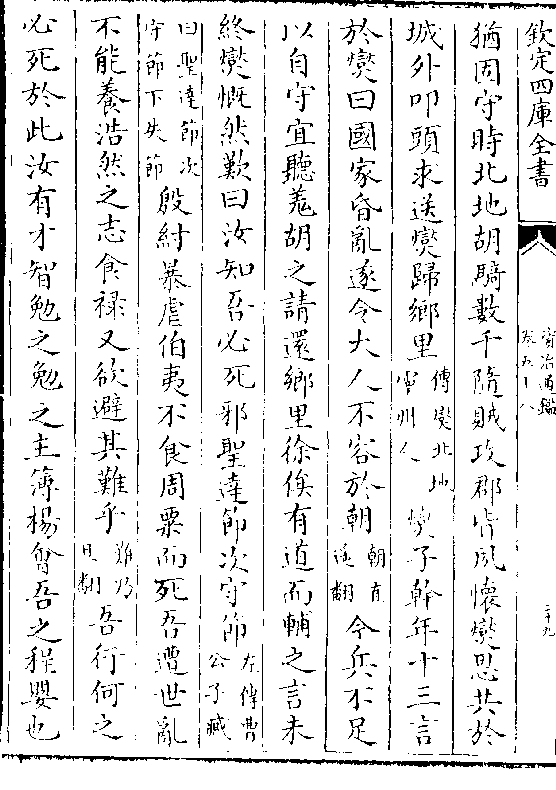 欽定四庫全書
資治通鑑
卷五十八
二十九
猶固守時北地胡騎數千隨賊攻郡皆夙懷燮恩共於
城外叩頭求送燮歸鄉里
傳燮北地
靈州人
燮子幹年十三言
於燮曰國家昏亂遂令大人不容於朝
朝直
遥翻
今兵不足
以自守宜聽羗胡之請還鄉里徐俟有道而輔之言未
終燮慨然歎曰汝知吾必死邪聖達節次守節
左傳曹
公子臧
曰聖達節次
守節下失節
殷紂暴虐伯夷不食周粟而死吾遭世亂
不能養浩然之志食祿又欲避其難乎
難乃
旦翻
吾行何之
必死於此汝有才智勉之勉之主簿楊㑹吾之程嬰也